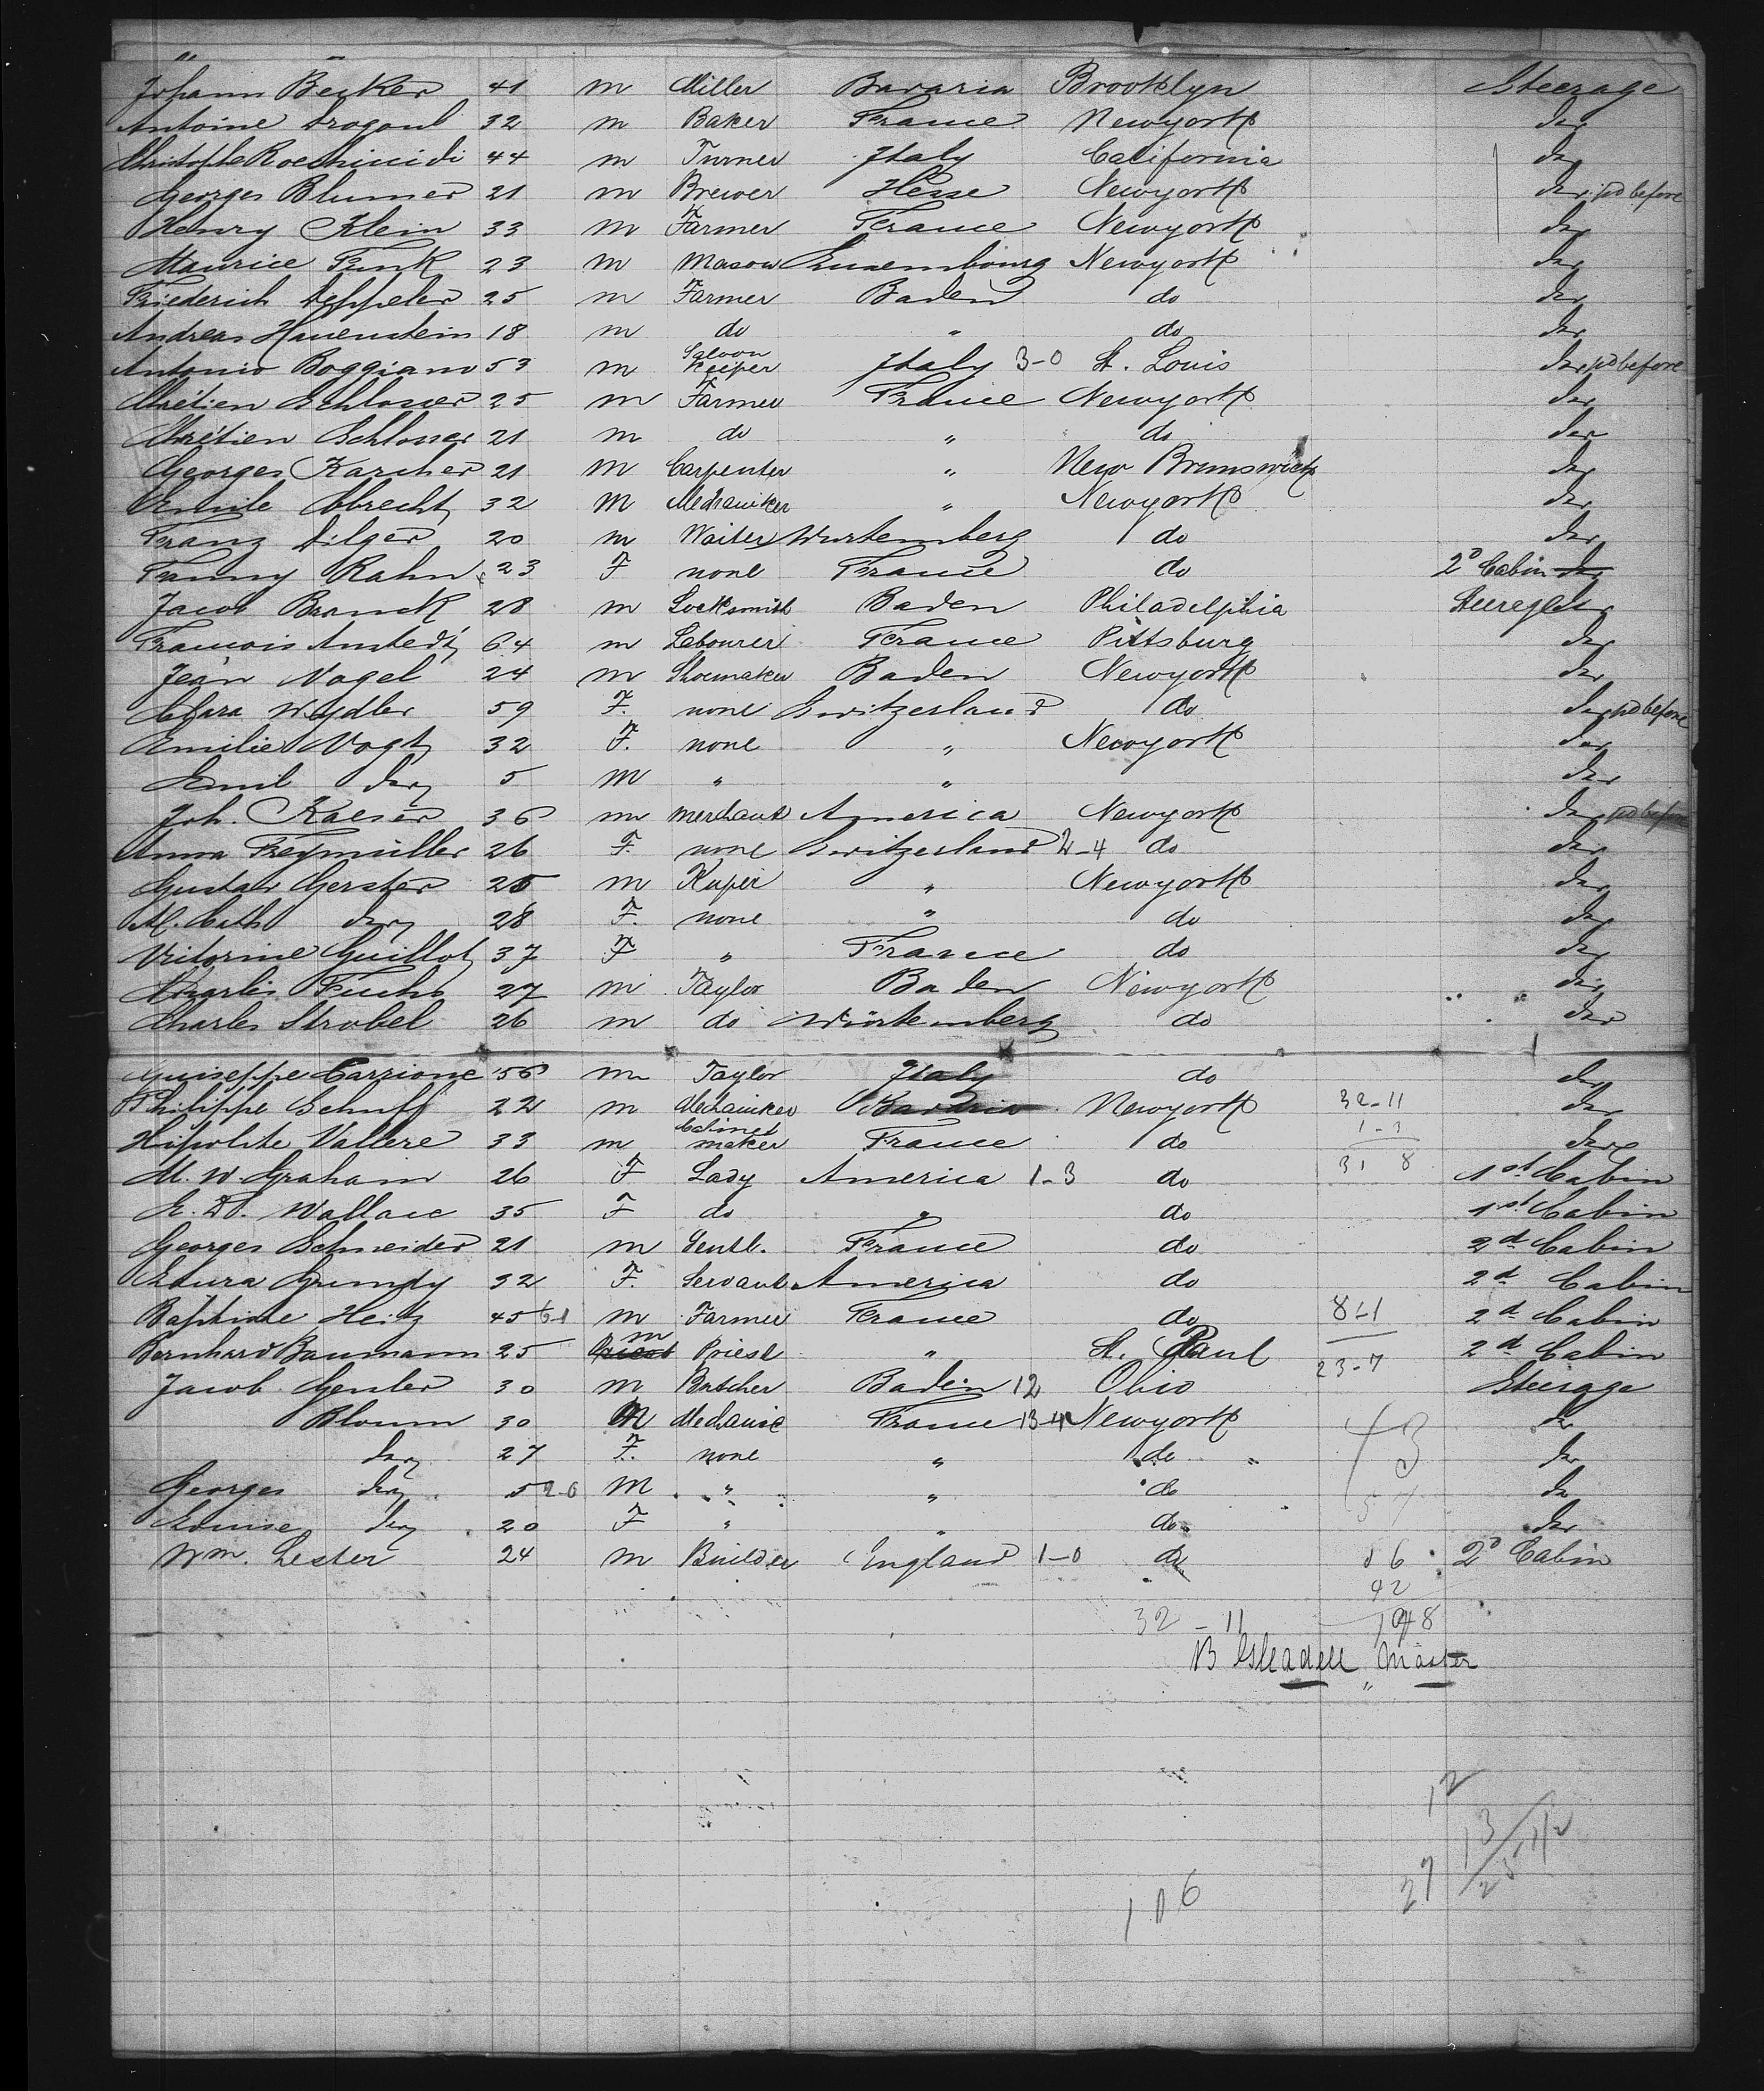 Johann Becker 41 m Miller Bavaria Brooklyn Steerage
Antoine Drogoul 32 m Baker France Newyork do
Christophe 44 m Turner Italy California do
Georges Blumer 21 m Brewer Hesse Newyork do pd before
Henry Klein 33 m Farmer France Newyork do
Maurice Funk 23 m Mason Luxembourg Newyork do
Friederich Deppeler 25 m Farmer Baden do do
Andreas Hauenstein 18 m do " do do
Antonio Boggiano 53 m Saloon Keeper Italy 3-0 St. Louis do pd before
Chrétien Schlosser 25 m Farmer France Newyork do
Chrétien Schlosser 21 m do " do do
Georges Karcher 21 m Carpenter " New Brunswick do
Emile Obrecht 32 m Mechaniker " Newyork do
Franz Dilger 20 m Waiter Wurtemberg do do
Fanny Kahn 23 F none France do 2d Cabin do
Jacob Branck 28 m Locksmith Baden Philadelphia Steerage do
Francois 64 m Labourer France Pittsburg do
Jean Vogel 24 m Shoemaker Baden Newyork do
Clara Wydler 59 F. none Switzerland do do pd before
Emilie Vogt 32 F. none " Newyork do
Emil do 5 m " " do
Joh. Kaeser 36 m merchant America Newyork do pd before
Anna Freymüller 26 F. none Switzerland 2-4 do do
Gustav Gerster 25 m Kuper " Newyork do
M. Cath do 28 F. none " do do
Vitorine Guillot 37 F " France do do
Charles Fuchs 27 m Taylor Baden Newyork do
Charles Strobel 26 m do Würtemberg do do
Guiseppe Carrione 56 m Taylor Italy do do
Philippe Schuff 22 m Mechaniker Bavaria Newyork 32-11 do
1-3
Hipolite Vallere 33 m Cabinet maker France do do
M. W. Graham 26 F Lady America 1-3 do 31 8 1st Cabin
E. D. Wallace 35 F do " do 1st Cabin
Georges Schneider 21 m Gentl. France do 2d Cabin
Laura Grundy 32 F. Servant America do 2d Cabin
Baptiste Heitz 45 6-1 m Farmer France do 8-1 2d Cabin
Bernhard Baumann 25 m Priest Priest " St. Paul 23-7 2d Cabin
Jacob Genler 30 m Butcher Baden 12 Ohio Steerage
Bloum 30 M Mechanic France 13-4 Newyork do
do 27 F. none " do " do
Georges do 5 2-0 M " " do do
57
Louise do 20 F " " do do
Wm. Lester 24 m Builder England 1-0 do 06 2d Cabin
42
32 - 11 148
B Gleadell " Master
12
13
27
25
106